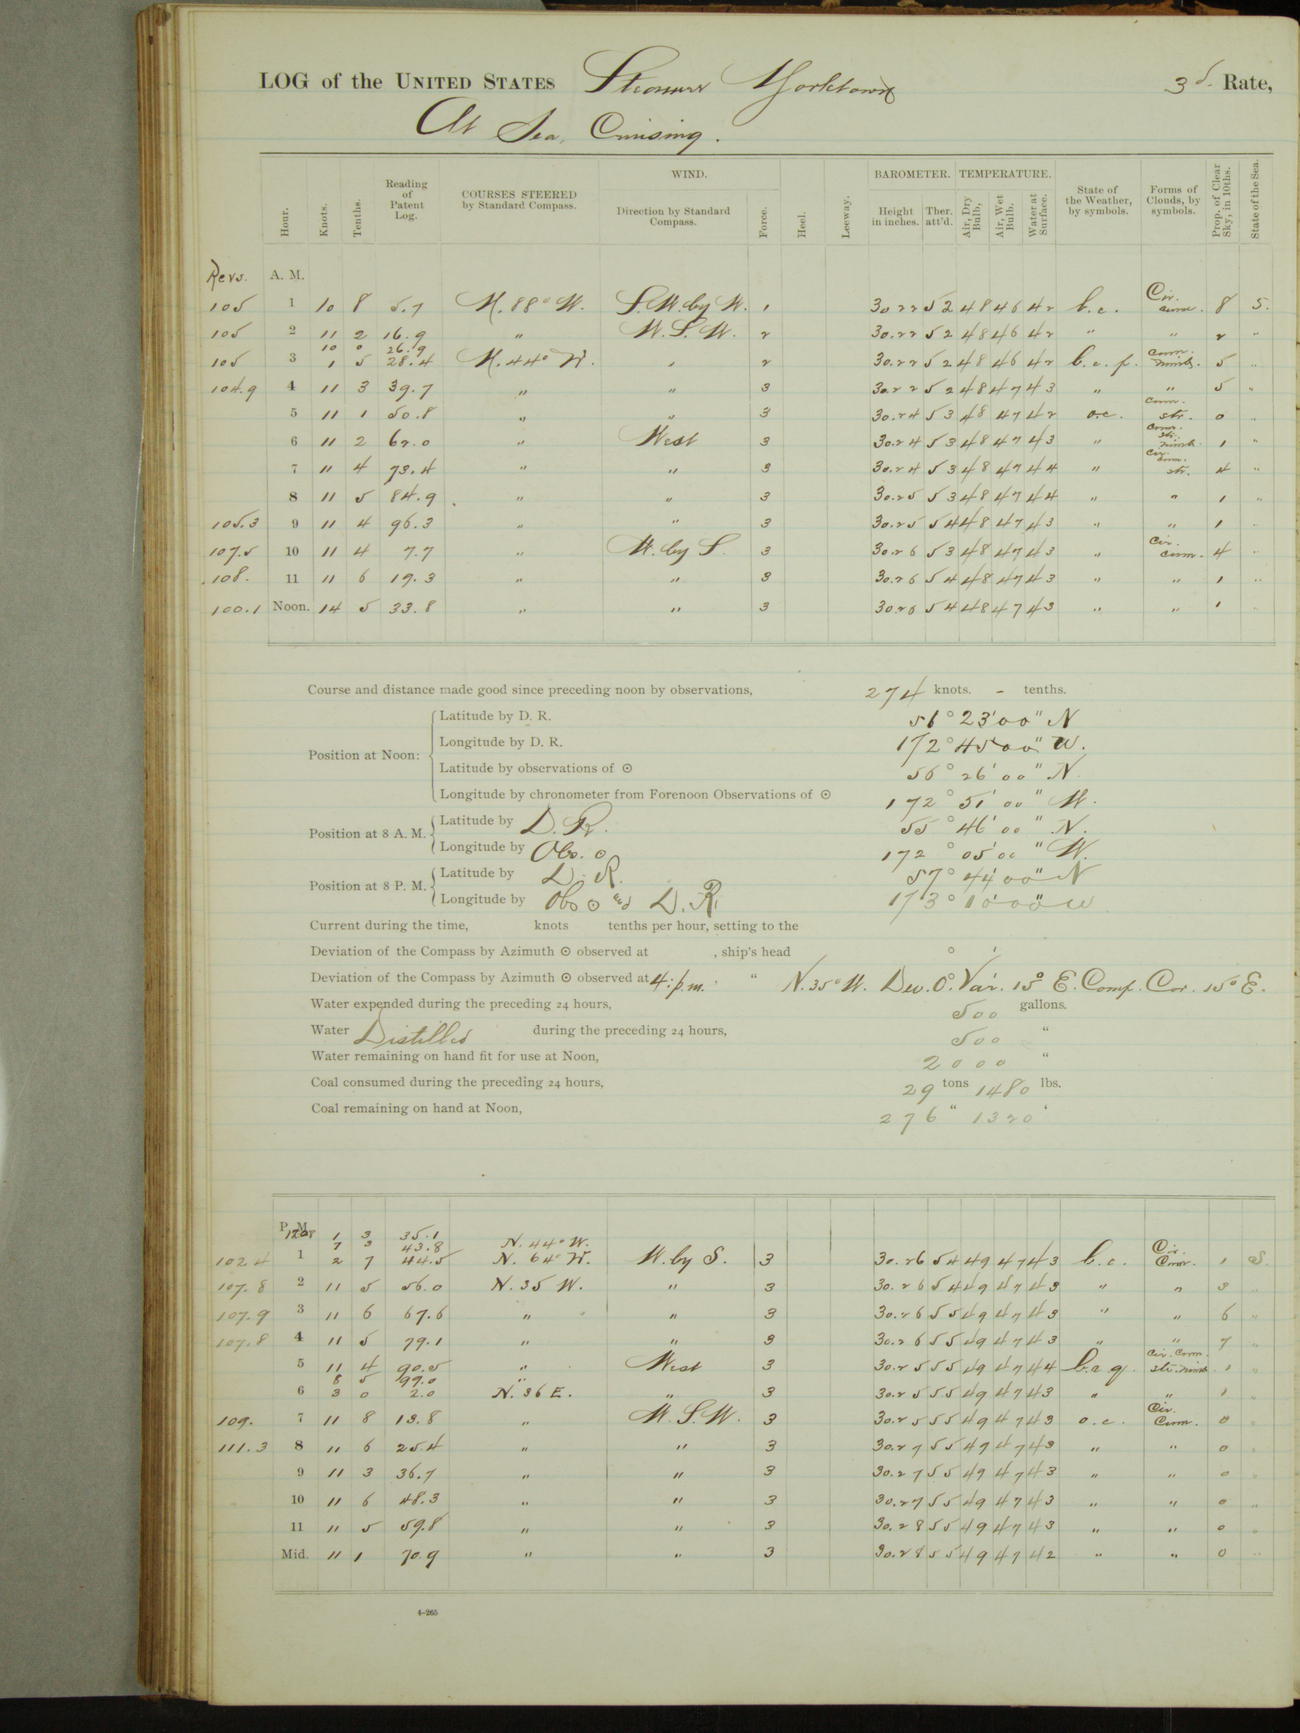 LOG of the UNITED STATES Steamer Yorktown 3d. Rate,
At Sea, Cruising.
Hour. Knots. Tenths. Reading of Patent Log. COURSES STEERED by Standard Compass. WIND. Direction by Standard Compass. Force. Heel. Leeway. BAROMETER. Height in inches. Ther. att'd. TEMPERATURE. Air, Dry Bulb, Air, Wet Bulb. Water at Surface. State of the Weather, by symbols. Forms of Clouds, by symbols. Prop. of Clear Sky, in 10ths. State of the Sea.
Revs. A. M.
105 1 10 8 5.7 N. 88° W. S.W. by W. 1 30.22 52 48 46 42 b.c. Cir. cum. 8 S.
105 2 11 2 16.9 " W.S.W. 2 30.22 52 48 46 42 " " 2 "
10 0 26.9
105 3 1 5 28.4 N. 44° W. " 2 30.22 52 48 46 42 b.c.p. cum. nimb. 5 "
104.9 4 11 3 39.7 " " 3 30.22 52 48 47 43 " " 5 "
5 11 1 50.8 " " 3 30.24 53 48 47 42 o.c. cum. str. 0 "
6 11 2 62.0 " West 3 30.24 53 48 47 43 " cum. str. nimb. 1 "
7 11 4 73.4 " " 3 30.24 53 48 47 44 " cir. cum. str. 4 "
8 11 5 84.9 " " 3 30.25 53 48 47 44 " " 1 "
105.3 9 11 4 96.3 " " 3 30.25 54 48 47 43 " " 1 "
107.5 10 11 4 7.7 " W. by S. 3 30.26 53 48 47 43 " Cir. cum. 4 "
108. 11 11 6 19.3 " " 3 30.26 54 48 47 43 " " 1 "
100.1 Noon. 14 5 33.8 " " 3 30.26 54 48 47 43 " " 1 "
Course and distance made good since preceding noon by observations, 274 knots. - tenths.
Position at Noon:
Latitude by D. R. 56° 23' 00" N
Longitude by D. R. 172° 45' 00" W.
Latitude by observations of ☉ 56° 26' 00" N.
Longitude by chronometer from Forenoon Observations of ☉ 172° 51' 00" W.
Position at 8 A. M.
Latitude by D. R. 55° 46' 00" N.
Longitude by Obs. ☉ 172° 05' 00" W.
Position at 8 P. M.
Latitude by D. R. 57° 44' 00" N
Longitude by Obs ☉ and D. R. 173° 10' 00" W
Current during the time, knots tenths per hour, setting to the
Deviation of the Compass by Azimuth ☉ observed at , ship's head ° '
Deviation of the Compass by Azimuth ☉ observed at 4: p.m. " N. 35° W. Dev. 0° Var. 15° E. Comp. Cor. 15° E.
Water expended during the preceding 24 hours, 500 gallons.
Water Distilled during the preceding 24 hours, 500 "
Water remaining on hand fit for use at Noon, 2000 "
Coal consumed during the preceding 24 hours, 29 tons 1480 lbs.
Coal remaining on hand at Noon, 276 " 1320 '
P. M.
1 3 35.1
7 3 43.8 N. 44° W.
102.4 1 2 7 44.5 N. 64° W. W. by S. 3 30.26 54 49 47 43 b.c. Cir. Cum. 1 S.
107.8 2 11 5 56.0 N. 35 W. " 3 30.26 54 49 47 43 " " 3 "
107.9 3 11 6 67.6 " " 3 30.26 55 49 47 43 " " 6 "
107.8 4 11 5 79.1 " " 3 30.26 55 49 47 43 " " 7 "
5 11 4 90.5 " West 3 30.25 55 49 47 44 b.c.q. Cir. Cum. str. nimb. 1 "
8 5 99.0 "
6 3 0 2.0 N. 36 E. " 3 30.25 55 49 47 43 " " 1 "
109. 7 11 8 13.8 " W.S.W. 3 30.25 55 49 47 43 o.c. Cir. Cum. 0 "
111.3 8 11 6 25.4 " " 3 30.27 55 49 47 43 " " 0 "
9 11 3 36.7 " " 3 30.27 55 49 47 43 " " 0 "
10 11 6 48.3 " " 3 30.27 55 49 47 43 " " 0 "
11 11 5 59.8 " " 3 30.28 55 49 47 43 " " 0 "
Mid. 11 1 70.9 " " 3 30.28 55 49 47 42 " " 0 "
4-265